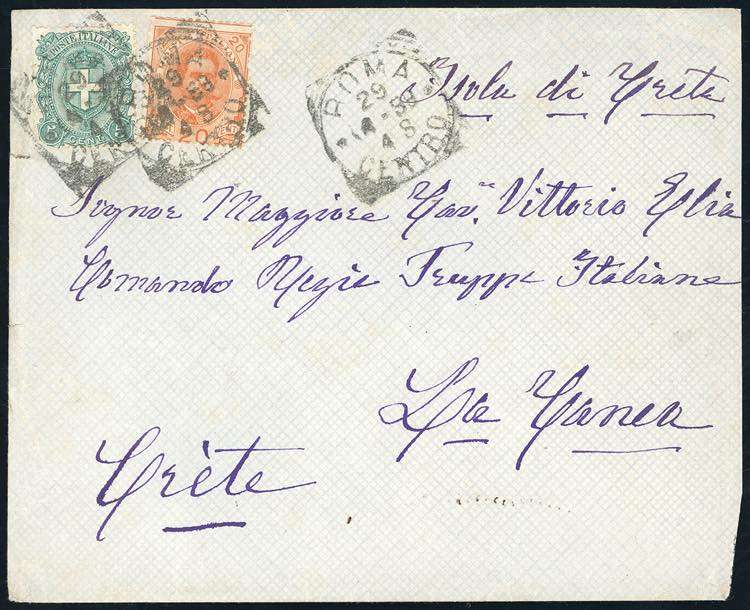 POSTE ITALIANE
5 CEN 5
20
20
ROMA
29
4-99
4 S
CENTRO
Isola di Creta
Signor Maggiore Cav. Vittorio Elia
Comando Regie Truppe Italiane
La Canea
Crète